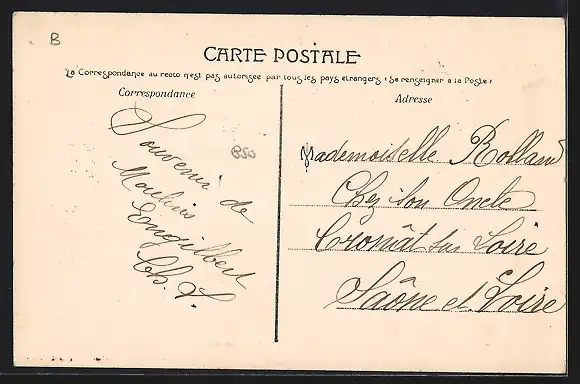 B
CARTE POSTALE
La Correspondance au recto n'est pas autorisée par tous les pays étrangers (Se renseigner à la Poste)
Correspondance
Adresse
Souvenir de
Moulins
Engilbert
Ch. L.
850
Mademoiselle Rolland
Chez son Oncle
Cronat sur Loire
Saône et Loire